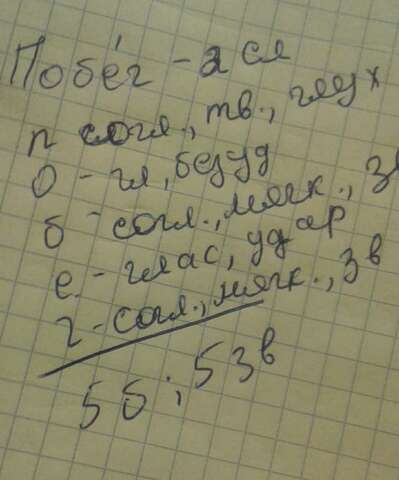 Побе́г - 2 сл
п согл., тв., глух
о - гл, безуд
б - согл., мягк., зв
е - глас, удар
г - согл., мягк., зв
5б; 5зв